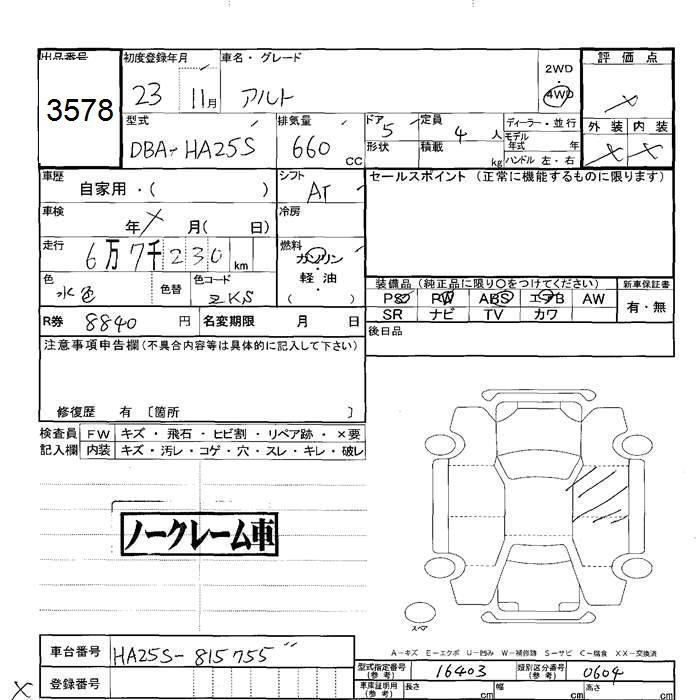 出品番号 3578
初度登録年月 23 11月
車名・グレード アルト
2WD
4WD
評価点
外装 内装
型式 DBA-HA25S
排気量 660 CC
ドア 5
形状
定員 4 人
積載 kg
ディーラー・並行
モデル年式 年
ハンドル 左・右
車歴 自家用・( )
シフト AT
セールスポイント (正常に機能するものに限ります)
車検 年 × 月( 日)
冷房
走行 6万7千230km
燃料 ガソリン・軽油 ( )
色 水色
色替
色コード ZKS
装備品 (純正品に限り〇をつけてください)
新車保証書
PS PW ABS エアB AW
有・無
SR ナビ TV カワ
R券 8840 円
名変期限 月 日
後日品
注意事項申告欄(不具合内容等は具体的に記入して下さい)
修復歴 有 〔箇所 〕
検査員 FW キズ・飛石・ヒビ割・リペア跡・×要
記入欄 内装 キズ・汚レ・コゲ・穴・スレ・キレ・破レ
ノークレーム車
スペア
A-キズ E-エクボ U-凹み W-補修跡 S-サビ C-腐食 XX-交換済
車台番号 HA25S-815755
型式指定番号(参考) 16403
類別区分番号(参考) 0604
登録番号
車庫証明用(参考) 長さ cm 幅 cm 高さ cm